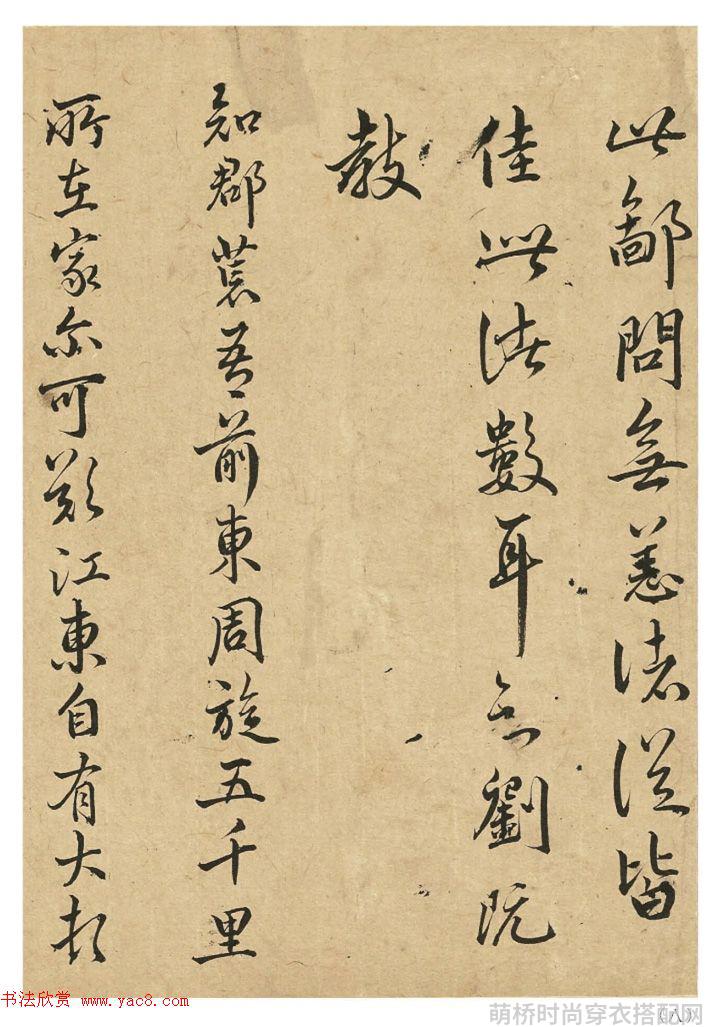 此鄙問無恙諸從皆
佳此數耳劉既
教
知郡荒吾前東周旋五千里
所在家尒可歎江東自有大
书法欣赏 www.yac8.com
萌桥时尚穿衣搭配网
(八)